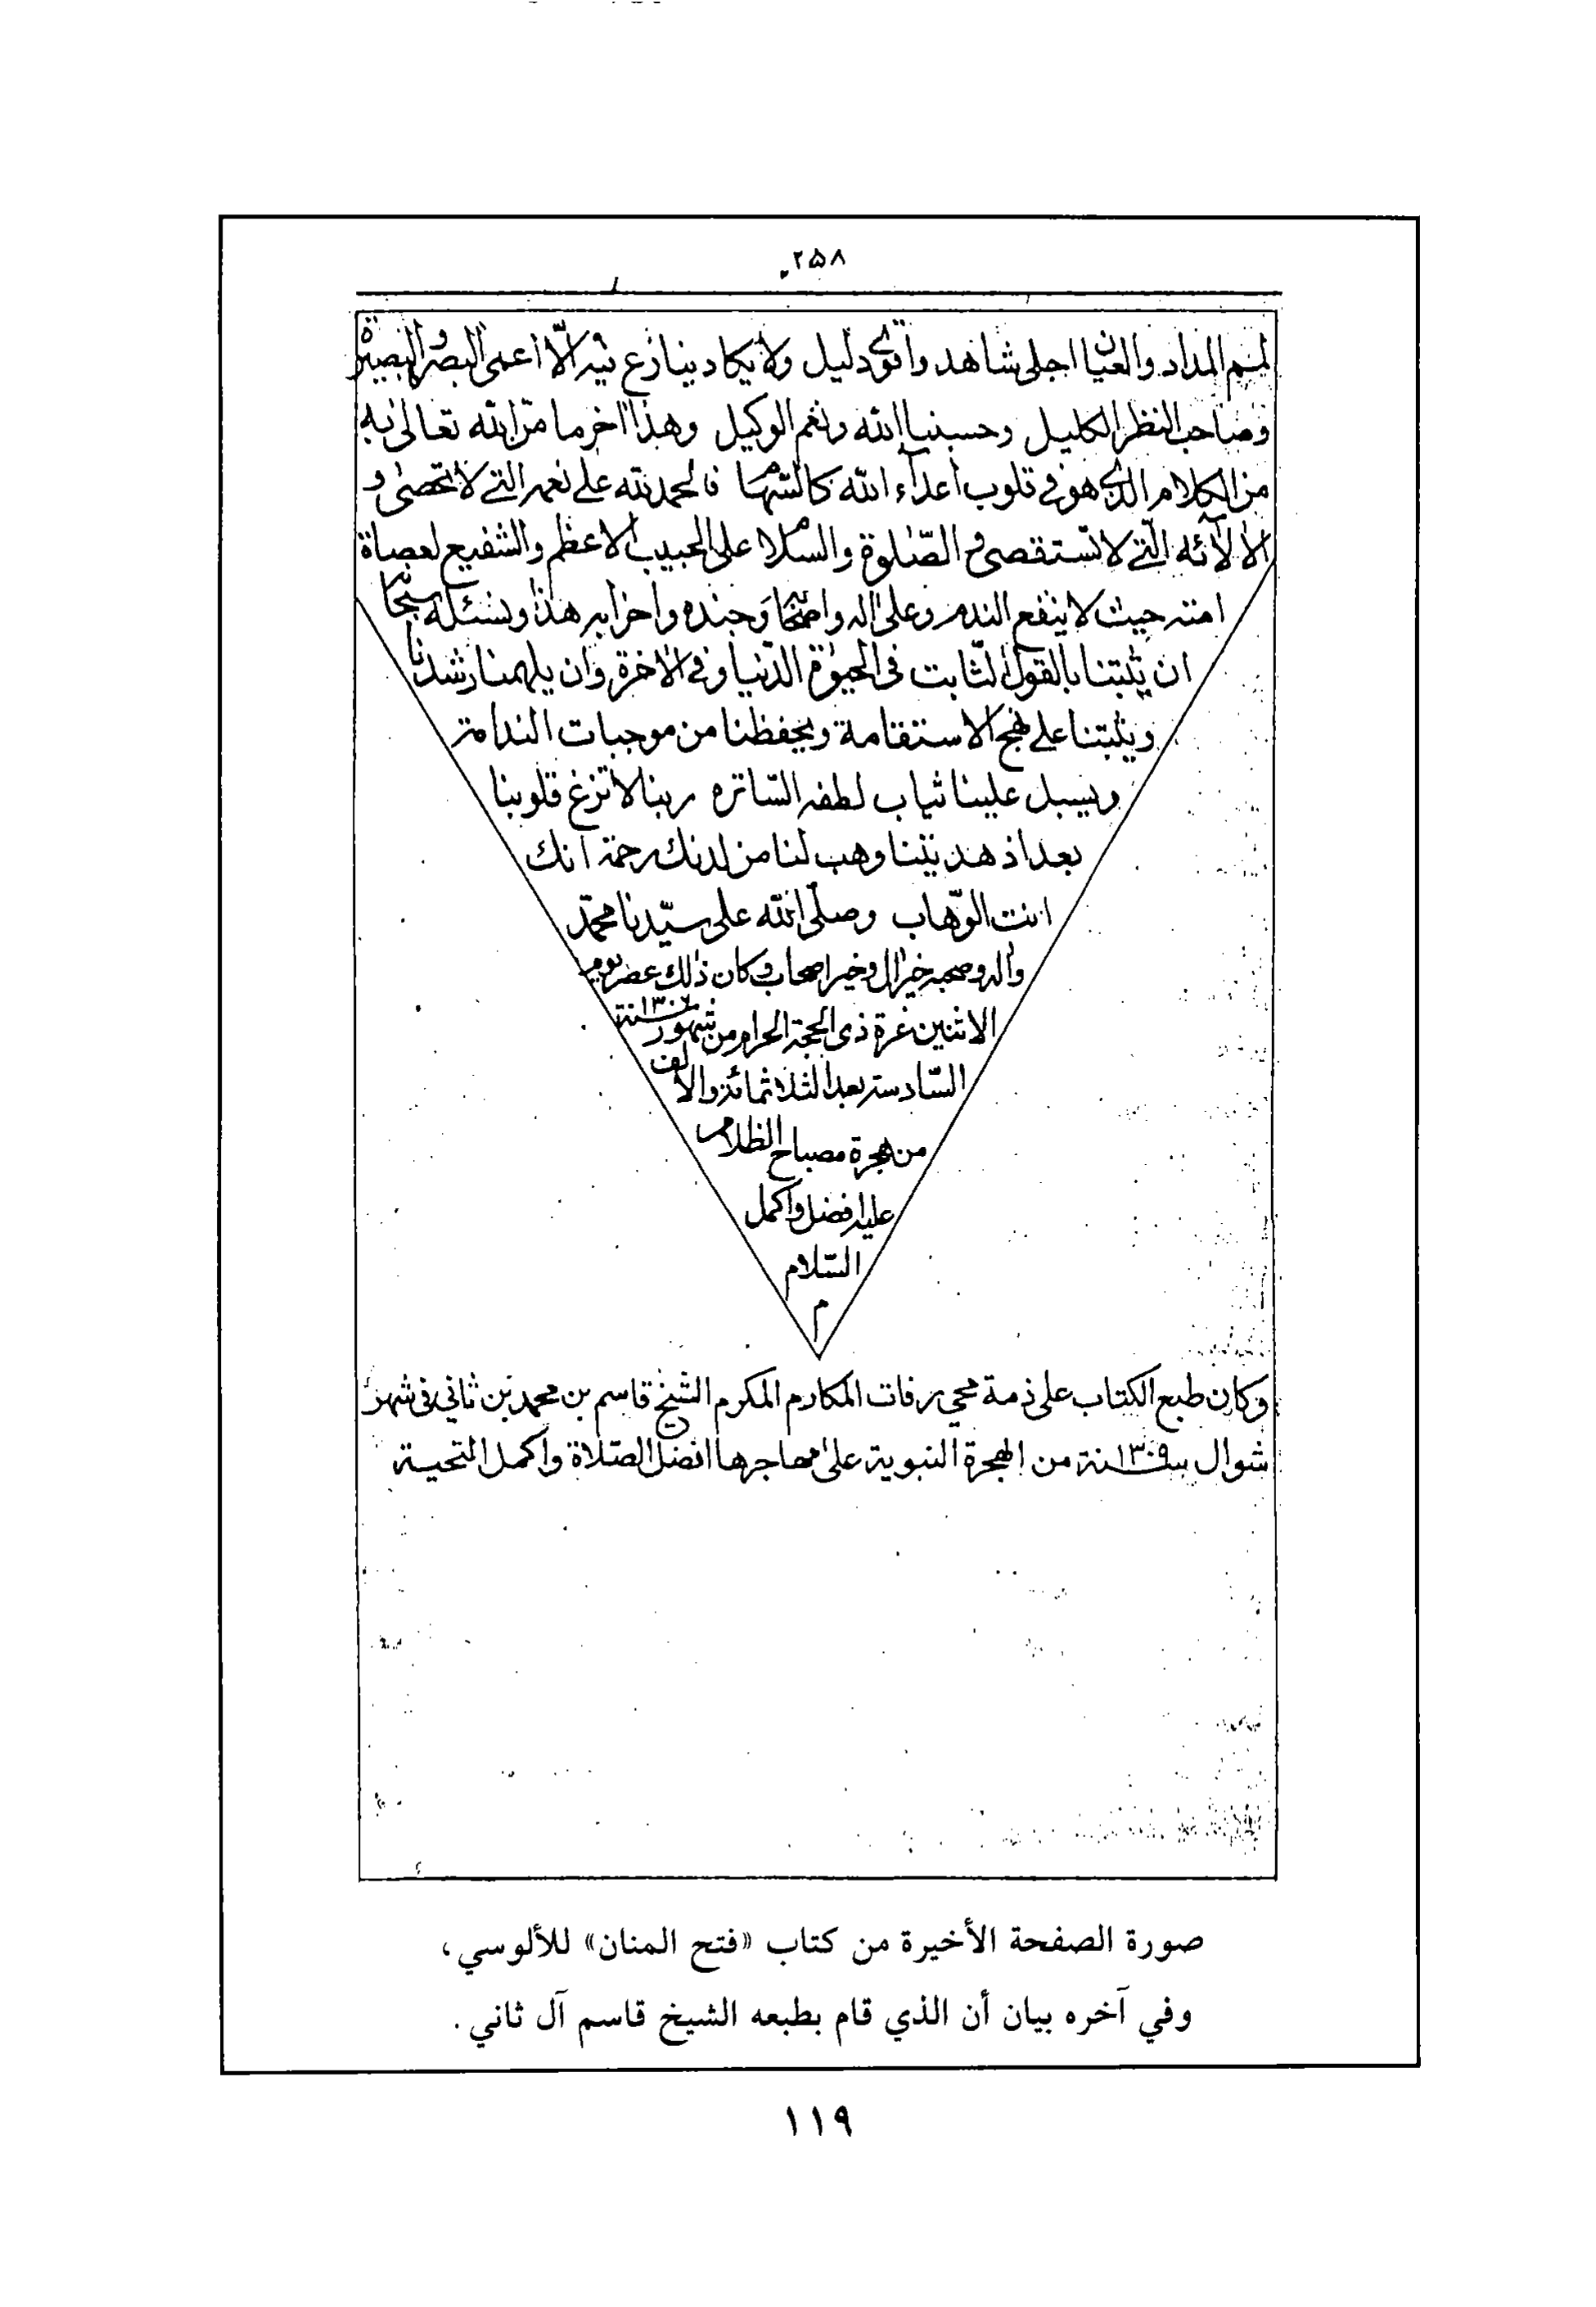 ٢٥٨
المداد والعيان اجلى شاهد واقوى دليل ولا يكاد ينازع فيه الّا اعمى البصر والبصيرة
وصاحب النظر الكليل وحسبنا الله ونعم الوكيل وهذا اخر ما منّ الله تعالى به
من الكلام الذى هو فى قلوب اعداء الله كالسهام فالحمد لله على نعمه التى لا تحصى و
الآئه التى لا تستقصى والصّلوة والسلام على الحبيب الاعظم والشفيع لعصاة
امته حيث لا ينفع الندم وعلى اله واصحابه وجنده واحزابه هذا ونسئله سبحانه
ان يثبتنا بالقول الثابت فى الحيوة الدّنيا وفى الاخرة وان يلهمنا رشدنا
ويثبتنا على نهج الاستقامة ويحفظنا من موجبات الندامة
ويسبل علينا ثياب لطفه السّاتره ربنا لا تزغ قلوبنا
بعد اذ هديتنا وهب لنا من لدنك رحمة انك
انت الوّهاب وصلّى الله على سيّدنا محمّد
واله وصحبه خير ال وخير اصحاب وكان ذلك عصر يوم
الاثنين غرة ذى الحجة الحرام من شهور سنة ١٣٠٦
السّادسة بعد الثلاثمائة والالف
من هجرة مصباح الظلام
عليه افضل واكمل
السّلام
م
وكان طبع الكتاب على ذمة محي رفات المكارم المكرم الشيخ قاسم بن محمد بن ثاني فى شهر
شوال سنة ١٣٠٩ من الهجرة النبوية على مهاجرها افضل الصّلاة واكمل التحية
صورة الصفحة الأخيرة من كتاب «فتح المنان» للألوسي،
وفي آخره بيان أن الذي قام بطبعه الشيخ قاسم آل ثاني.
١١٩